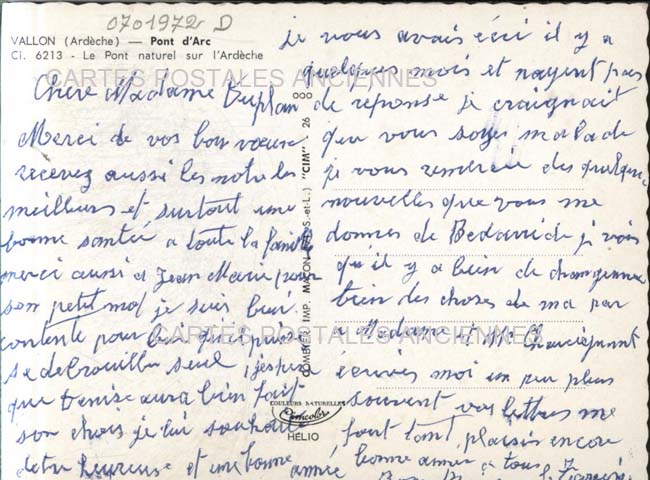 0701972 D
VALLON (Ardèche) — Pont d'Arc
Cl. 6213 - Le Pont naturel sur l'Ardèche
CARTES POSTALES ANCIENNES
Chère Madame Duplan
Merci de vos bon vœux
recevez aussi les notre les
meilleurs et surtout une
bonne santée a toute la famille
merci aussi a Jean Marie pour
son petit mot je suis bien
contente pour lui qu'il puisse
se debrouiller seul, j'espere
que Denise aura bien fait
son choix je lui souhaite
detre heureuse et une bonne année
COMBIER IMP. MACON (S.-et-L.) "CIM"
COULEURS NATURELLES
HELIO
je vous avais écri il y a
quelques mois et nayent pas
de reponse je craignait
que vous soyez malade
je vous remercie des quelques
nouvelles que vous me
donnes de Bedarride je vois
qu'il y a bien de changement
bien des choses de ma par
a Madame et Mr
CARTES POSTALES ANCIENNES
écrivés moi un peu plus
souvent vos lettres me
font tant plaisir encore
bonne année a tous